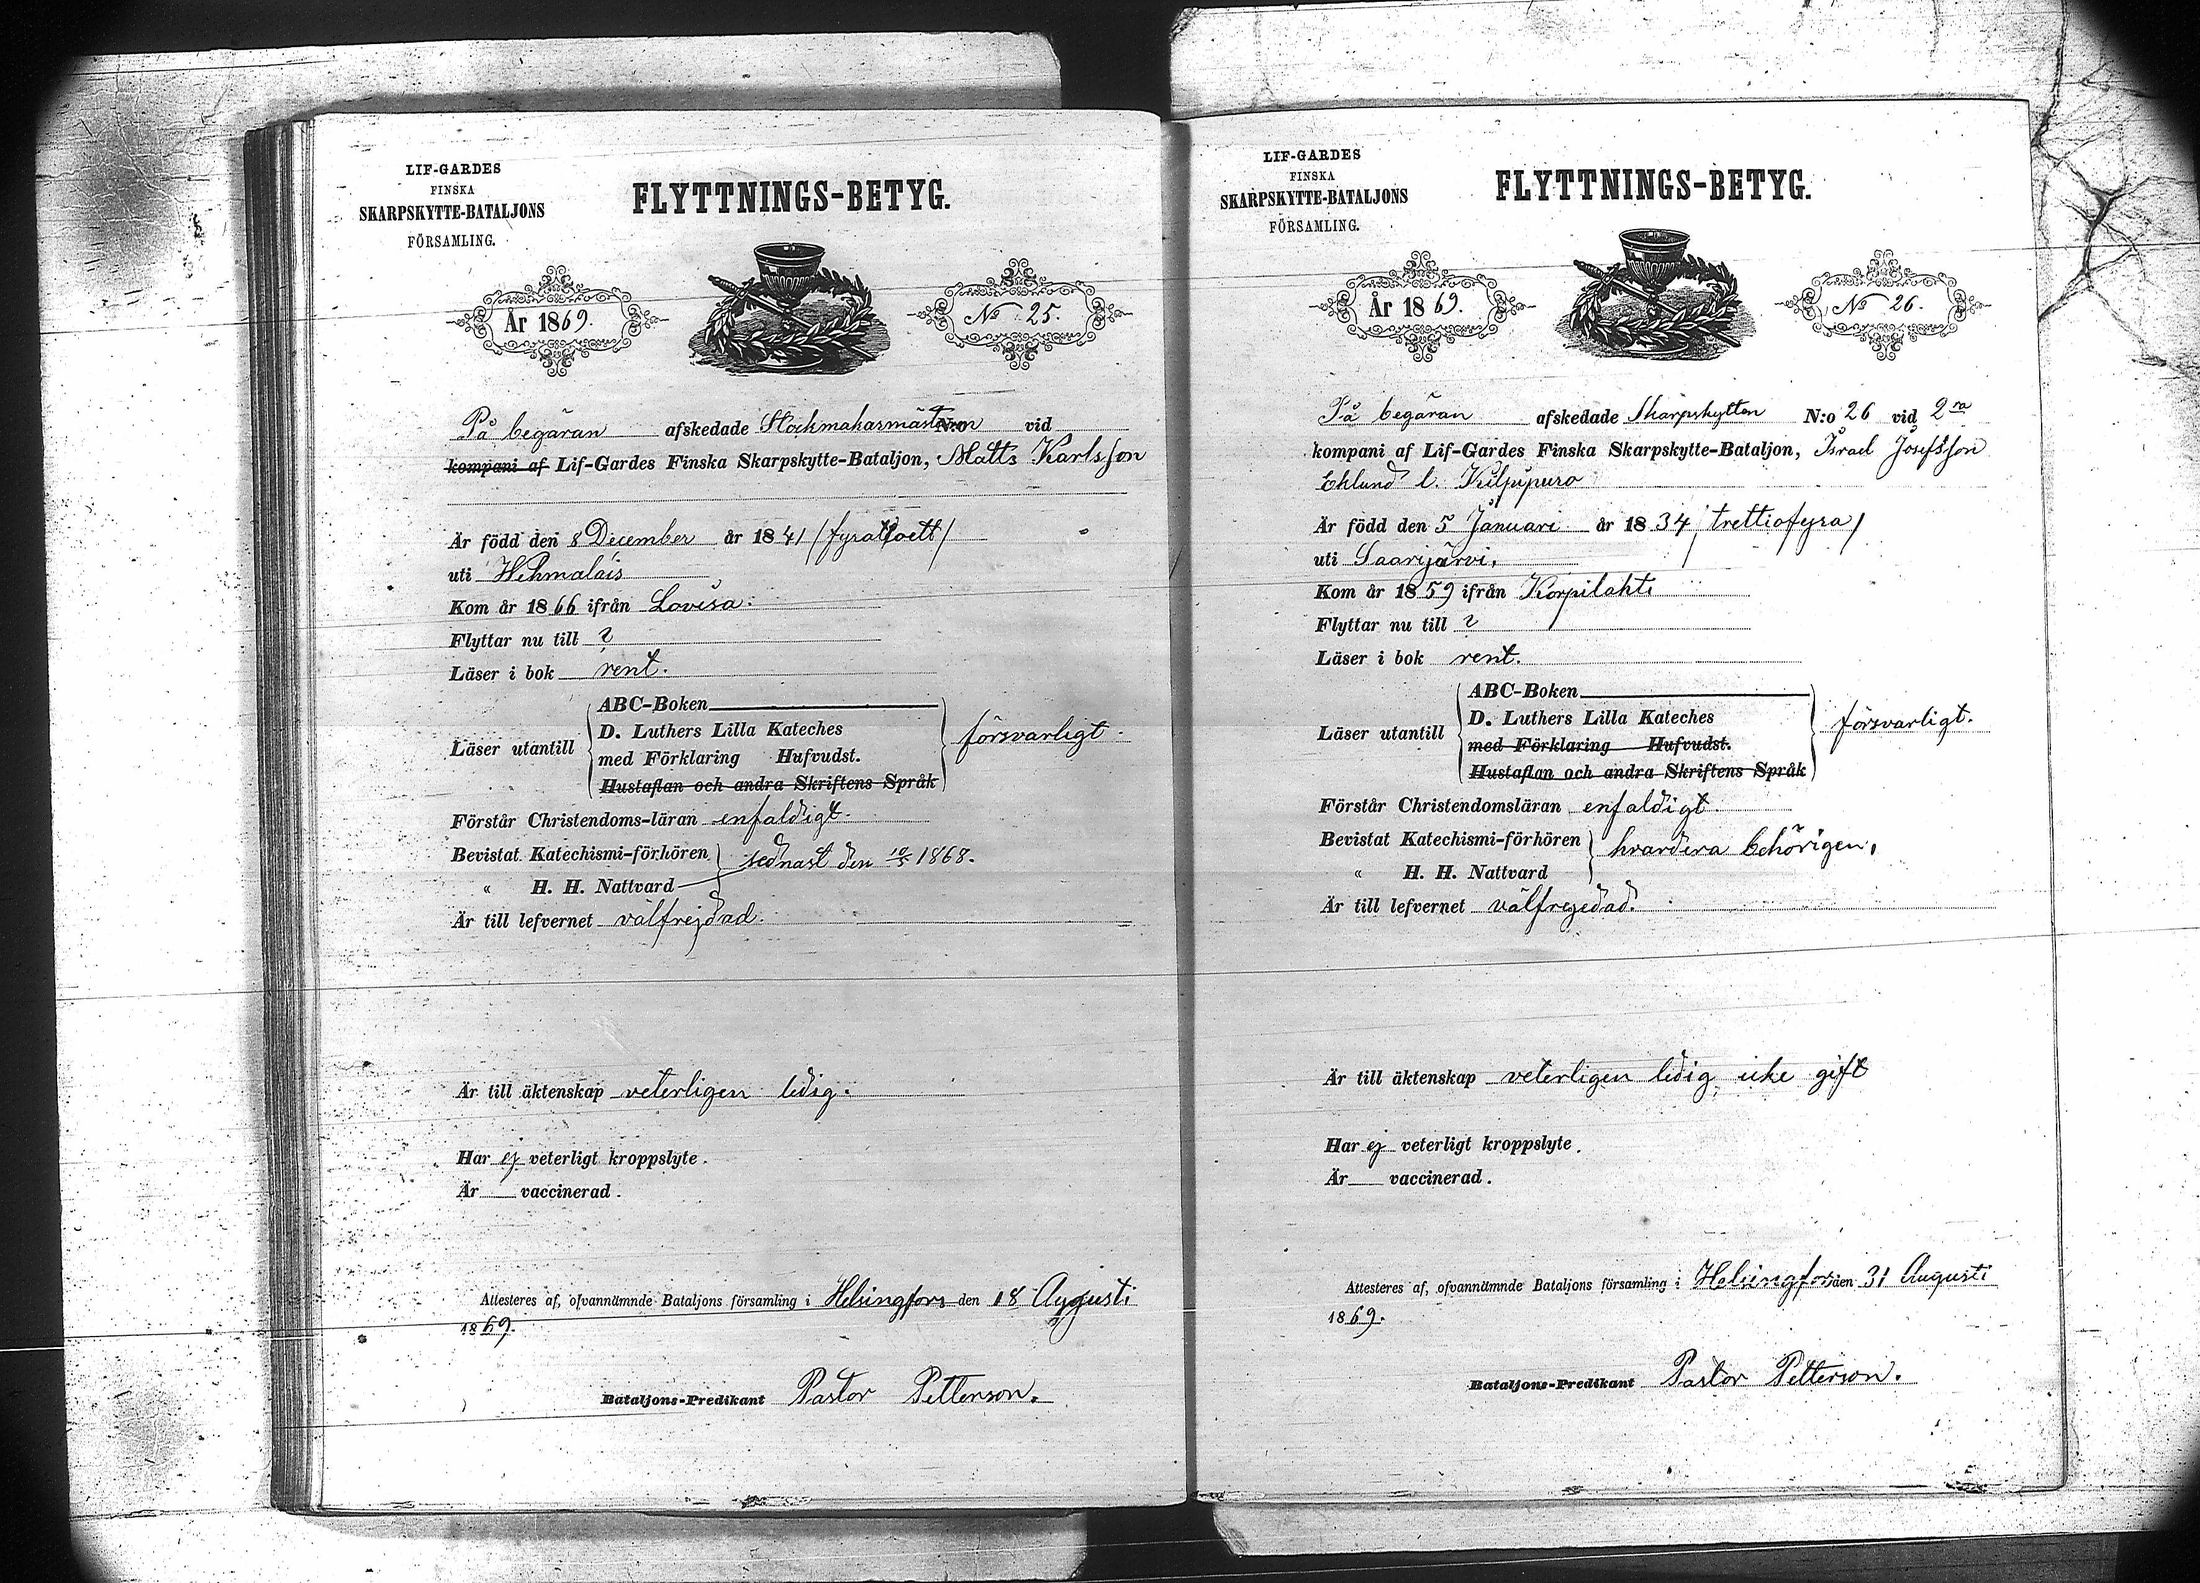 LIF-GARDES
FINSKA
SKARPSKYTTE-BATALJONS
FÖRSAMLING.
FLYTTNINGS-BETYG.
År 1869.
No 25.
På begäran afskedade Stockmakarmästaren N:o vid
kompani af Lif-Gardes Finska Skarpskytte-Bataljon, Matts Karlsson
Är född den 8 December år 1841 /fyratioett/
uti Wehmalais
Kom år 1866 ifrån Lovisa.
Flyttar nu till ?
Läser i bok rent.
Läser utantill
ABC-Boken
D. Luthers Lilla Kateches
med Förklaring Hufvudst.
Hustaflan och andra Skriftens Språk
försvarligt.
Förstår Christendoms-läran enfaldigt.
Bevistat Katechismi-förhören
„ H. H. Nattvard
sednast den 10/5 1868.
Är till lefvernet välfrejdad.
Är till äktenskap veterligen ledig.
Har ej veterligt kroppslyte.
Är vaccinerad.
Attesteres af, ofvannämnde Bataljons församling i Helsingfors den 18 Augusti
1869.
Bataljons-Predikant Pastor Petterson.
LIF-GARDES
FINSKA
SKARPSKYTTE-BATALJONS
FÖRSAMLING.
FLYTTNINGS-BETYG.
År 1869.
No 26.
På begäran afskedade Skarpskytten N:o 26 vid 2ra
kompani af Lif-Gardes Finska Skarpskytte-Bataljon, Israel Josefsson
Eklund l. Kuljupuro
Är född den 5 Januari år 1834 /trettiofyra/
uti Saarijärvi.
Kom år 1859 ifrån Korpilahti
Flyttar nu till ?
Läser i bok rent.
Läser utantill
ABC-Boken
D. Luthers Lilla Kateches
med Förklaring Hufvudst.
Hustaflan och andra Skriftens Språk
försvarligt.
Förstår Christendomsläran enfaldigt.
Bevistat Katechismi-förhören
„ H. H. Nattvard
hvardera behörigen.
Är till lefvernet välfrejdad.
Är till äktenskap veterligen ledig, icke gift
Har ej veterligt kroppslyte.
Är vaccinerad.
Attesteres af, ofvannämnde Bataljons församling i Helsingfors den 31 Augusti
1869.
Bataljons-Predikant Pastor Petterson.